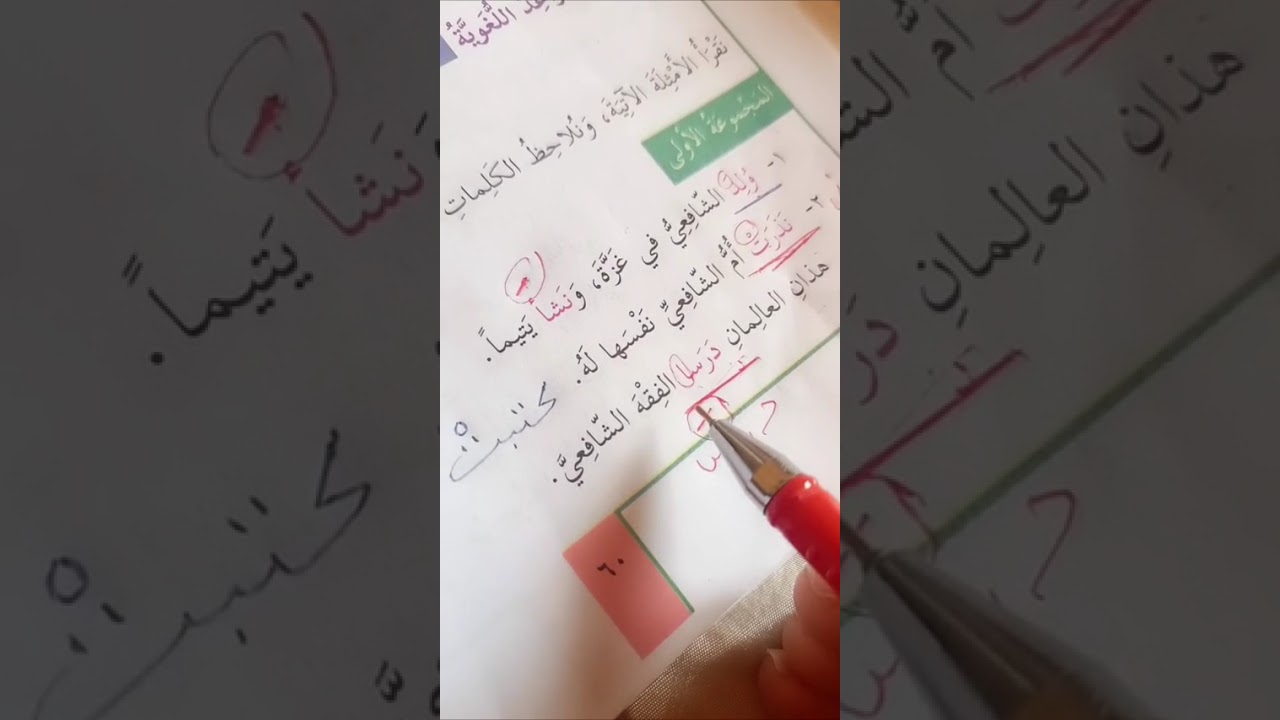 اللُّغَوِيَّةُ
نَقْرَأُ الأَمْثِلَةَ الآتِيَةَ، وَنُلاحِظُ الكَلِماتِ
المَجْموعَةُ الأولى
١- وُلِدَ الشّافِعِيُّ في غَزَّةَ، وَنَشأَ يَتيماً.
٢- نَذَرَت أُمُّ الشّافِعِيِّ نَفْسَها لَهُ.
هذانِ العالِمانِ دَرَسا الفِقْهَ الشّافِعيَّ.
كتبتْ
٦٠